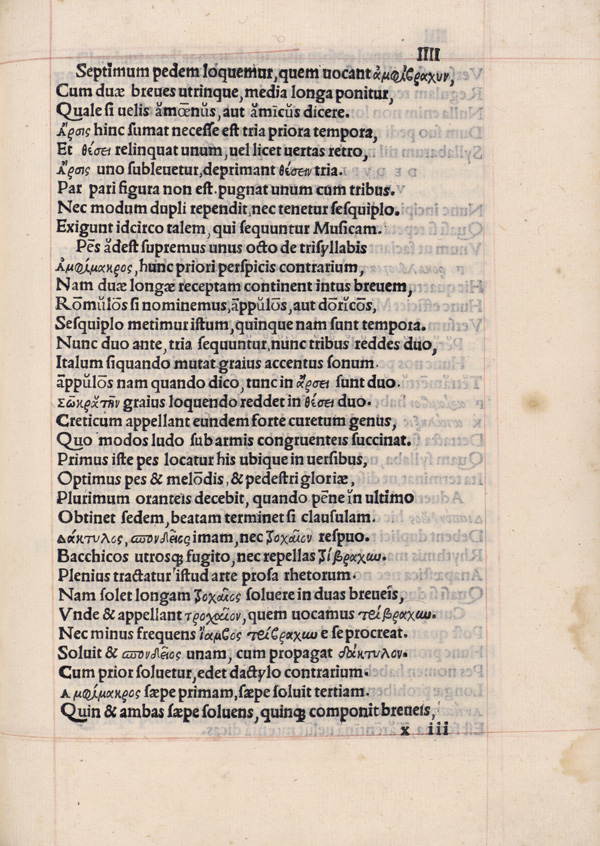 IIII
Septimum pedem loquemur, quem uocant ἀμφίβραχυν,
Cum duæ breues utrinque, media longa ponitur,
Quale si uelis ămœ̄nŭs, aut ămīcŭs dicere.
ἄρσις hinc sumat necesse est tria priora tempora,
Et θέσει relinquat unum, uel licet uertas retro,
ἄρσις uno subleuetur, deprimant θέσειν tria.
Par pari figura non est. pugnat unum cum tribus.
Nec modum dupli rependit, nec tenetur sesquiplo.
Exigunt idcirco talem, qui sequuntur Musicam.
Pēs ădest supremus unus octo de trisyllabis
Ἀμφίμακρος, hunc priori perspicis contrarium,
Nam duæ longæ receptam continent intus breuem,
Rōmŭlōs si nominemus, āppŭlōs, aut dōrĭcōs,
Sesquiplo metimur istum, quinque nam sunt tempora.
Nunc duo ante, tria sequuntur, nunc tribus reddes duo,
Italum siquando mutat graius accentus sonum.
āppŭlōs nam quando dico, tunc in ἄρσει sunt duo.
Σωκράτην graius loquendo reddet in θέσει duo.
Creticum appellant eundem forte curetum genus,
Quo modos ludo sub armis congruenteis succinat.
Primus iste pes locatur his ubique in uersibus,
Optimus pes & melōdis, & pedestri gloriæ,
Plurimum oranteis decebit, quando pēne ĭn ultimo
Obtinet sedem, beatam terminet si clausulam.
Δάκτυλος, σπονδεῖος imam, nec τροχαῖον respuo.
Bacchicos utrosqꝫ fugito, nec repellas τρίβραχων.
Plenius tractatur istud arte prosa rhetorum.
Nam solet longam τροχαῖος soluere in duas breueis,
Vnde & appellant τροχαῖον, quem uocamus τρίβραχων.
Nec minus frequens ἴαμβος τρίβραχων e se procreat.
Soluit & σπονδεῖος unam, cum propagat δάκτυλον.
Cum prior soluetur, edet dactylo contrarium.
Ἀμφίμακρος sæpe primam, sæpe soluit tertiam.
Quin & ambas sæpe soluens, quinqꝫ componit breueis,
x iii